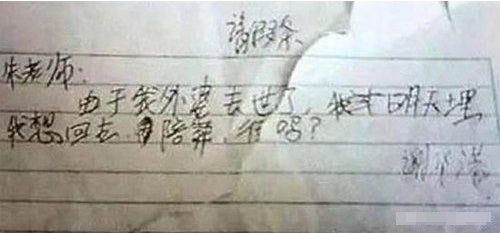 请假条
朱老师：
由于我外婆去世了，我才明天埋
我想回去陪葬，行吗？